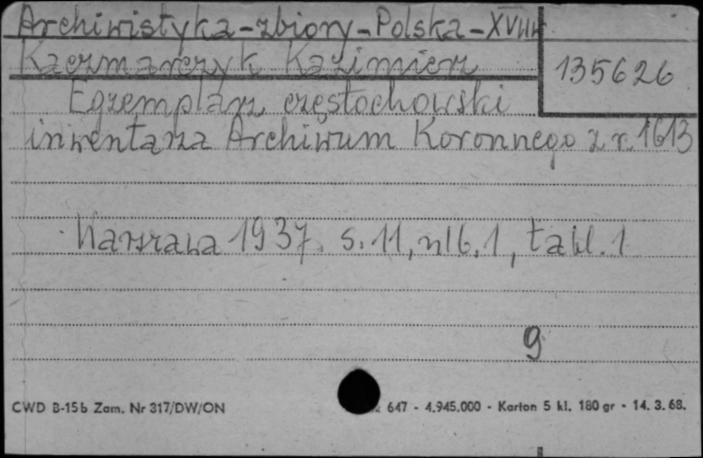 Archiwistyka-zbiory-Polska-XVIIw
Kaczmarczyk Kazimierz
135626
Egzemplarz częstochowski
inwentarza Archiwum Koronnego z r. 1613
Warszawa 1937. s. 11, nlb. 1, tabl. 1
9
CWD B-15b Zam. Nr 317/DW/ON 647 - 4.945.000 - Karton 5 kl. 180 gr - 14. 3. 68.